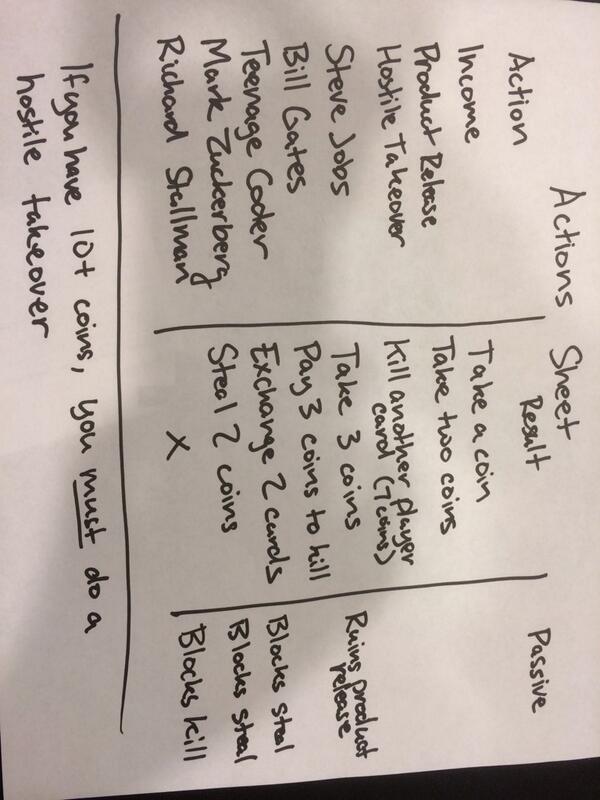 Actions Sheet
Action Result Passive
Income Take a coin
Product Release Take two coins
Hostile Takeover Kill another player
card (7 coins)
Steve Jobs Take 3 coins Ruins product
release
Bill Gates Pay 3 coins to kill
Teenage Coder Exchange 2 cards Blocks steal
Mark Zuckerberg Steal 2 coins Blocks steal
Richard Stallman X Blocks kill
If you have 10+ coins, you must do a
hostile takeover